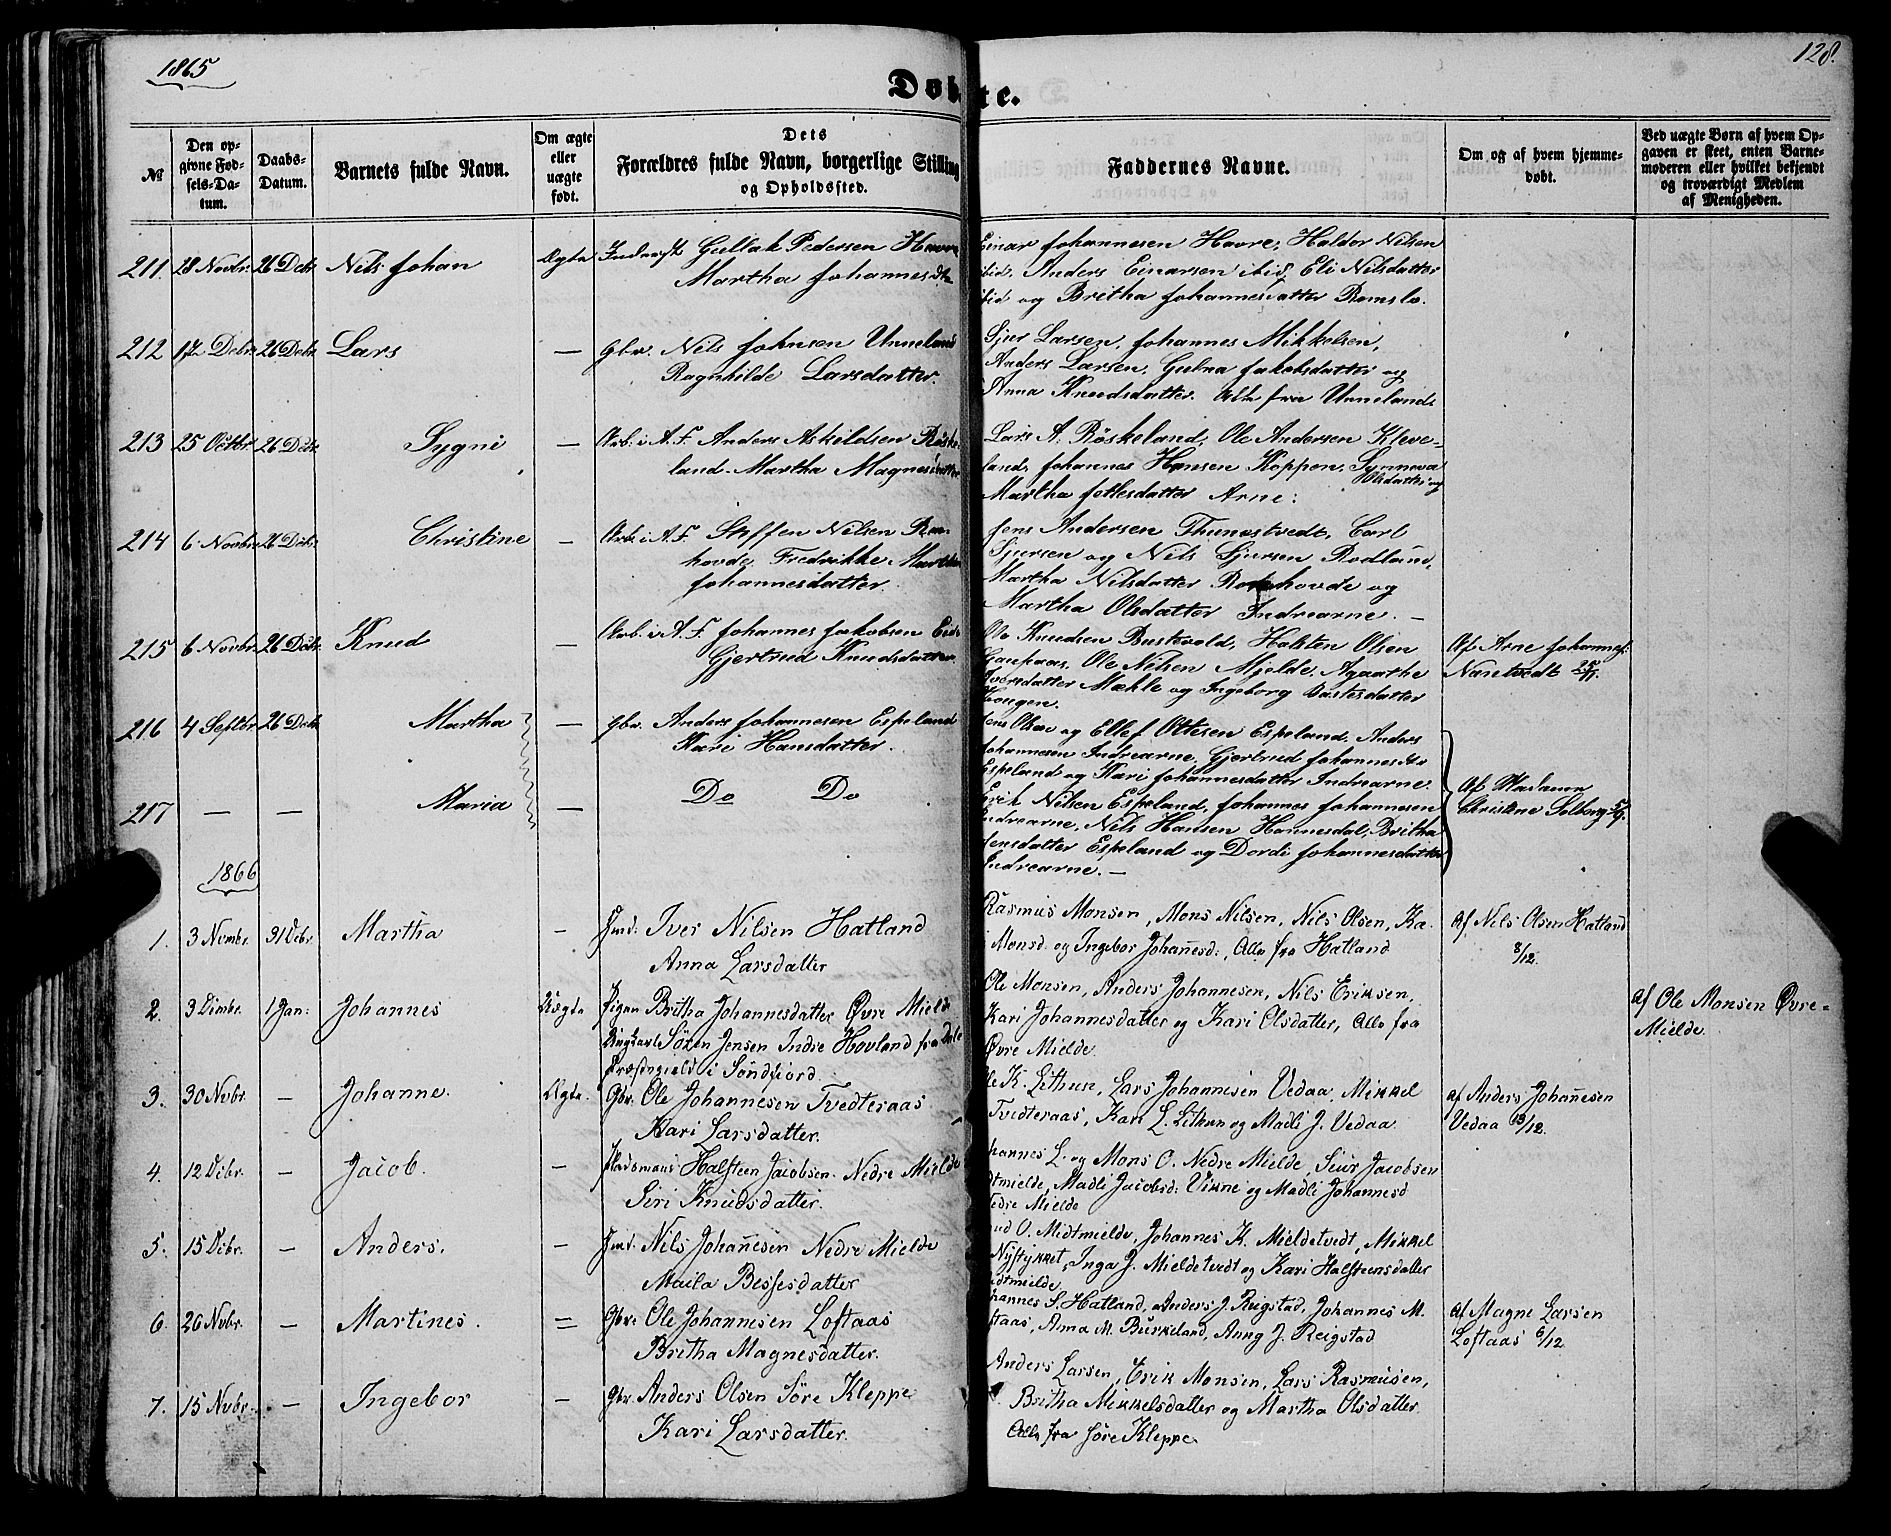 1865
128.
Døbte.
№
Den opgivne Fødsels-Datum.
Daabs-Datum.
Barnets fulde Navn.
Om ægte eller uægte født.
Dets Forældres fulde Navn, borgerlige Stilling og Opholdssted.
Faddernes Navne.
Om og af hvem hjemmedøbt.
Ved uægte Børn af hvem Opgaven er skeet, enten Barnemoderen eller hvilket bekjendt og troværdigt Medlem af Menigheden.
211. 28 Novbr. 26 Debr. Nils Johan Ægte Gullak Pedersen Havre
Martha Johannesdtr
Einar Johannesen Havre, Haldor Nilsen
ibid. Anders Einarsen ibid, Eli Nilsdatter
ibid og Britha Johannesdatter Romslo.
212 17 Debr. 26 Debr. Lars — Gbr. Nils Johnsen Unneland
Ragnhilde Larsdatter.
Sjur Larsen, Johannes Mikkelsen,
Anders Larsen, Gulna Jakobsdatter og
Anna Knudsdatter. Alle fra Unneland.
213 25 Octbr. 26 Debr. Sygni — Arb. i A. F. Anders Askildsen Röske-
land. Martha Magnesdatter
Lars A. Röskeland, Ole Andersen Kleve-
land, Johannes Hansen Koppen, Synneva
Olsdatter og
Martha Jettesdatter Arne:
214 6 Novbr. 26 Debr. Christine — Arb. i A. F. Steffen Nilsen
hovde, Fredrikke Martha
Johannesdatter.
Jens Andersen Thunestvedt, Carl
Sjursen og Nils Sjursen Rødland,
Martha Nilsdatter hovde og
Martha Olsdatter Indrearne. —
215 6 Novbr. 26 Debr. Knud — Arb. i A. F. Johannes Jakobsen Eide
Gjertrud Knudsdatter
Ole Knudsen Bustevold, Halsten Olsen
Gaupaas, Ole Nilsen Mjelde, Agaathe
Iversdatter Mæhle og Ingeborg Baltesdatter
Hougen.
Af Arne Johannes:
Naretvedt 25/11.
216 4 Septbr. 26 Debr. Martha — Gbr. Anders Johannesen Espeland
Kari Hansdatter.
Jens Olsen og Ellef Ottesen Espeland. Anders
Johannesen Indrearne, Gjertrud Johannesdtr
Espeland og Kari Johannesdatter Indrearne.
217 — — Maria — Do Do
Erik Nilsen Espeland, Johannes Johannesen
Indrearne, Nils Hansen Hannesdal, Britha
Jensdatter Espeland og Dordi Johannesdatter
Indrearne. —
Af Madame
Christine Solberg 5/9.
1866
1. 3 Novmbr. 31 Debr. Martha — Ind: Iver Nilsen Hatland
Anna Larsdatter
Rasmus Monsen, Mons Nilsen, Nils Olsen, Ka.
Monsd. og Ingebor Johañesd:, Alle fra Hatland
af Nils Olsen Hatland
8/12.
2. 3 Dcmbr. 1 Jan: Johannes Uægte Pigen Britha Johannesdatter Øvre Mielde
Ungkarl Sören Jensen Indre Hovland fra Dale
Præstegield i Söndfiord
Ole Monsen, Anders Johannesen, Nils Eriksen,
Kari Johannesdatter og Kari Olsdatter, Alle fra
Øvre Mielde
af Ole Monsen Øvre-
Mielde.
3. 30 Nvbr. — Johanne. Ægte Gbr. Ole Johannesen Tvedteraas
Kari Larsdatter.
Ole K. Lithun, Lars Johannesen Vedaa, Mikkel
Tvedteraas, Kari L. Lithun og Madli J. Vedaa.
af Anders Johañesen
Vedaa 13/12.
4. 12 Debr. — Jacob. — Pladsmand Halsteen Jacobsen. Nedre Mielde
Siri Knudsdatter.
Johannes L. og Mons O. Nedre Mielde, Siur Jacobsen
Midtmielde, Madli Jacobsd: Vikne og Madli Johannesd
Nedre Mielde
5. 15 Debr. — Anders. — Ind. Nils Johañesen Nedre Mielde
Maila Bessesdatter
Knud O. Midtmielde, Johannes K. Mieldetvedt, Mikkel
Nystykket, Inga J. Mieldetvedt og Kari Halsteensdatter
Midtmielde
6. 26 Nvbr. — Martines. = Gbr: Ole Johannesen Loftaas
Britha Magnesdatter.
Johannes S. Hatland, Anders J. Reigstad, Johannes M.
Loftaas, Anna M. Burkeland, Anng J. Reigstad
af Magne Larsen
Loftaas 6/12
7. 15 Nvbr. — Ingebor — Gbr. Anders Olsen Söre Kleppe
Kari Larsdatter.
Anders Larsen, Erik Monsen, Lars Rasmusen,
Britha Mikkelsdatter og Martha Olsdatter
Alle fra Söre Kleppe